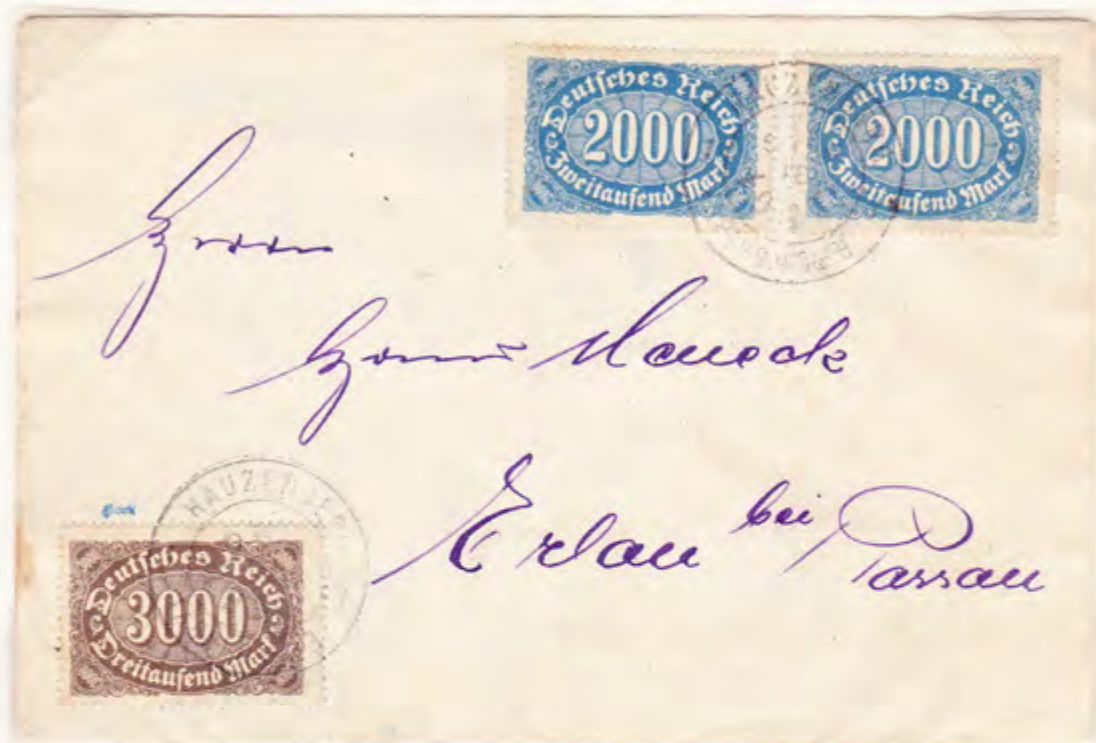 Deutsches Reich
2000
Zweitausend Mark
Deutsches Reich
2000
Zweitausend Mark
Herrn
Maneck
Erlau bei Passau
HAUZENBER
Deutsches Reich
3000
Dreitausend Mark